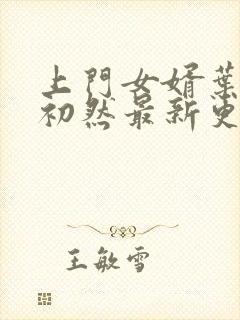 上門女婿葉
初然最新更
王敏雪